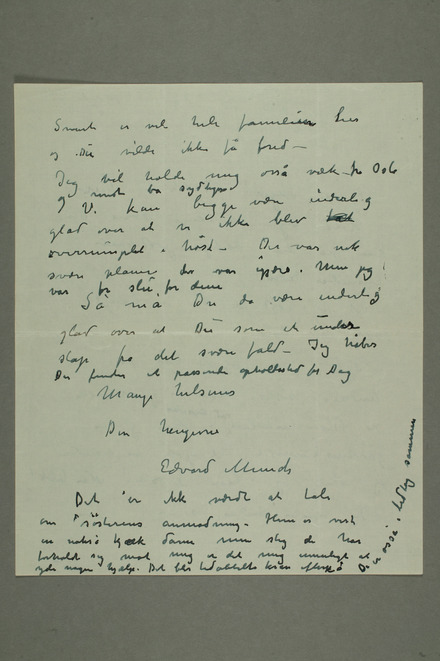 Snart er vel hele familien her
og Du vilde ikke få fred –
Jeg vil holde mig også væk fra Oslo
og
Vi kan begge være inderlig
glad over at vi ikke blev
overrumplet i høst – Det var nok
svære planer der var igjære. Men jeg
var for slu for dem
Så må Du da være inderlig
glad over at Du som et under
slap fra det svære fald – Jeg håber
Du finder et passende opholdssted for Dag
Mange hilsener
Din hengivne
Edvard Munch
Det er ikke værdt at tale
om søsterens anmodning – Hun er vist
en nokså kjæk dame men slig de har
forholdt sig mod mig er det mig umuligt at
yde nogen hjælp. Det blir